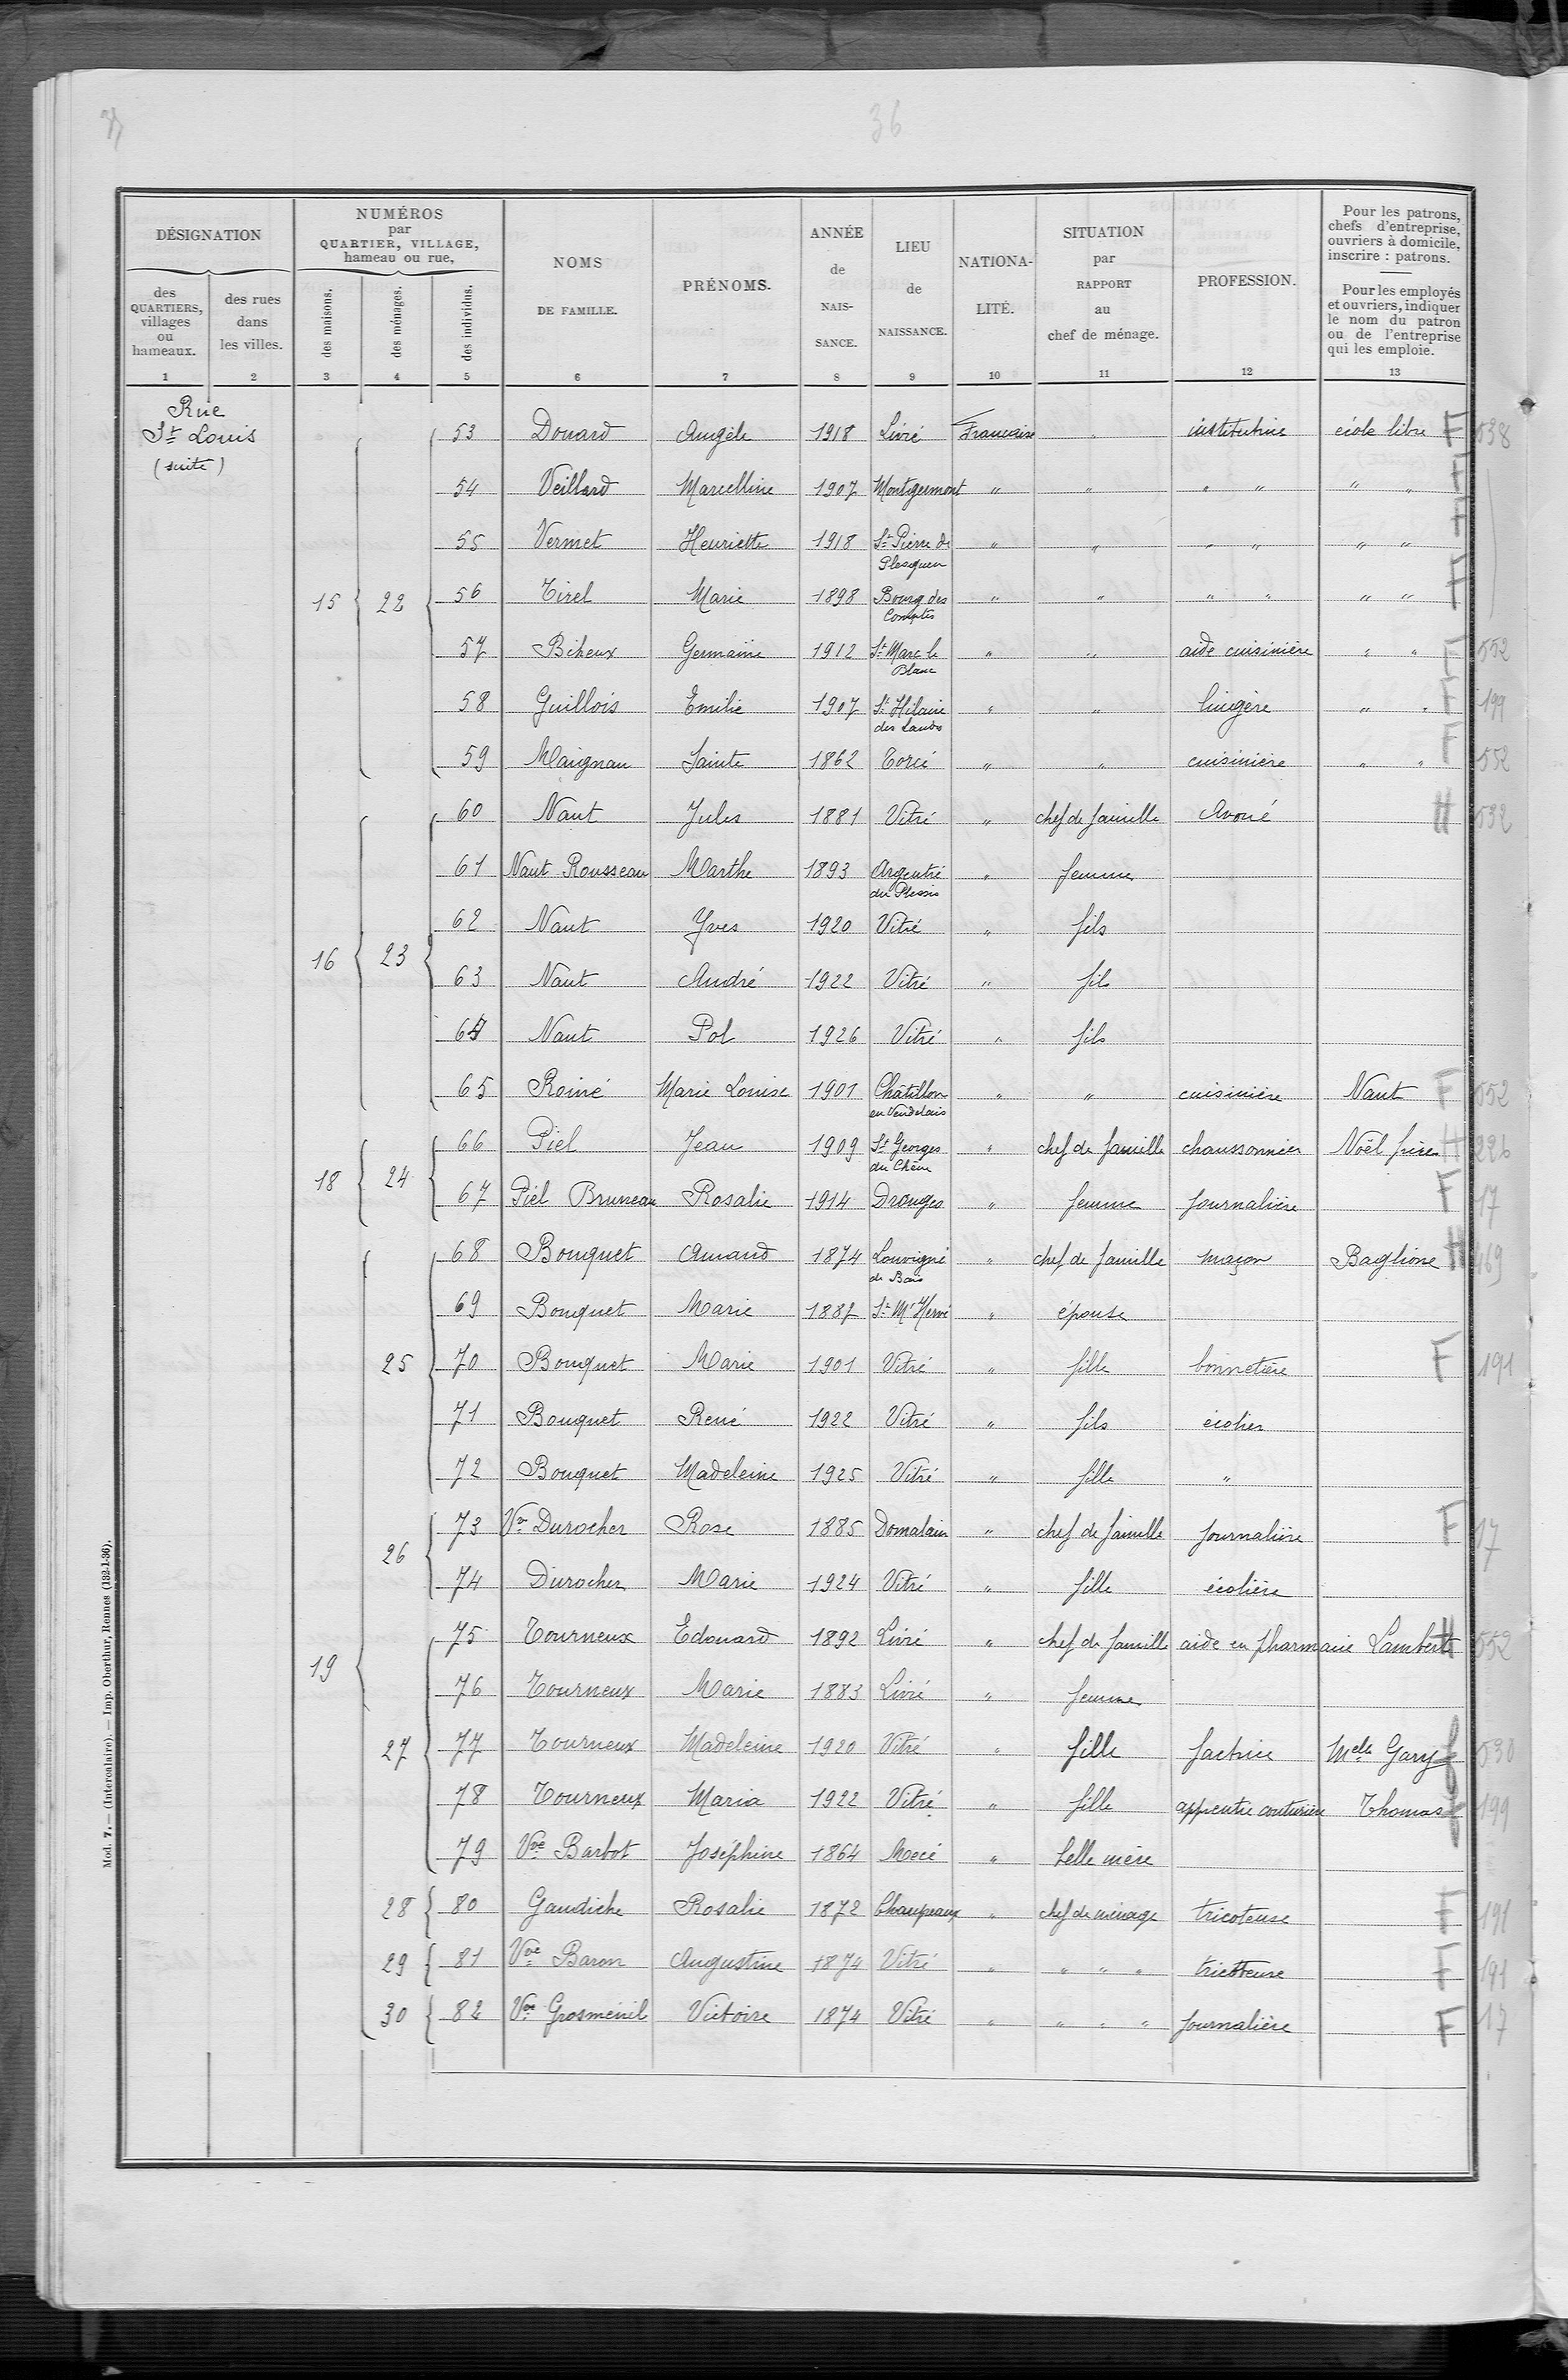 36
DÉSIGNATION
des QUARTIERS, villages ou hameaux.
des rues dans les villes.
NUMÉROS par QUARTIER, VILLAGE, hameau ou rue,
des maisons.
des ménages.
des individus.
NOMS DE FAMILLE.
PRÉNOMS.
ANNÉE de NAIS-SANCE.
LIEU de NAISSANCE.
NATIONA-LITÉ.
SITUATION par RAPPORT au chef de ménage.
PROFESSION.
Pour les patrons, chefs d'entreprise, ouvriers à domicile, inscrire : patrons.
Pour les employés et ouvriers, indiquer le nom du patron ou de l'entreprise qui les emploie.
1 2 3 4 5 6 7 8 9 10 11 12 13
Rue St Louis (suite)
53 Douard Angèle 1918 Livré Française " institutrice école libre F 538
15 22
54 Veillard Marcelline 1907 Montgermont " " " " " " F
55 Vermet Henriette 1918 St Pierre de Plesguen " " " " " " F
56 Tirel Marie 1898 Bourg des Comptes " " " " " " F
57 Biheux Germaine 1912 St Marc le Blanc " " aide cuisinière " " F 552
58 Guillois Emilie 1907 St Hilaire des Landes " " lingère " " F 199
59 Maignan Sainte 1862 Torcé " " cuisinière " " F 552
16 23
60 Naut Jules 1881 Vitré " chef de famille Avoué H 532
61 Naut Rousseau Marthe 1893 Argentré du Plessis " femme
62 Naut Yves 1920 Vitré " fils
63 Naut André 1922 Vitré " fils
64 Naut Pol 1926 Vitré " fils
65 Roiné Marie Louise 1901 Châtillon en Vendelais " " cuisinière Naut F 552
18 24
66 Piel Jean 1909 St Georges du Chêne " chef de famille chaussonnier Noël frères H 226
67 Piel Bruneau Rosalie 1914 Drouges " femme journalière F 17
19
25
68 Bouquet Amand 1874 Louvigné de Bais " chef de famille maçon Baglione H 469
69 Bouquet Marie 1882 St M' Hervé " épouse
70 Bouquet Marie 1901 Vitré " fille bonnetière F 191
71 Bouquet René 1922 Vitré " fils écolier
72 Bouquet Madeleine 1925 Vitré " fille "
26
73 Vve Durocher Rose 1885 Domalain " chef de famille journalière F 17
74 Durocher Marie 1924 Vitré " fille écolière
27
75 Tourneux Edouard 1892 Livré " chef de famille aide en pharmacie Lambert H 552
76 Tourneux Marie 1883 Livré " femme
77 Tourneux Madeleine 1920 Vitré " fille factrice Melle Gary F 530
78 Tourneux Maria 1922 Vitré " fille apprentie couturière Thomas F 199
79 Vve Barbot Joséphine 1864 Mecé " belle mère
28 80 Gaudiche Rosalie 1872 Champeaux " chef de ménage tricoteuse F 191
29 81 Vve Baron Augustine 1874 Vitré " " " " tricoteuse F 191
30 82 Vve Grosmenil Victoire 1874 Vitré " " " " journalière F 17
Mod. 7. — (Intercalaire). — Imp. Oberthur, Rennes (132-1-36).